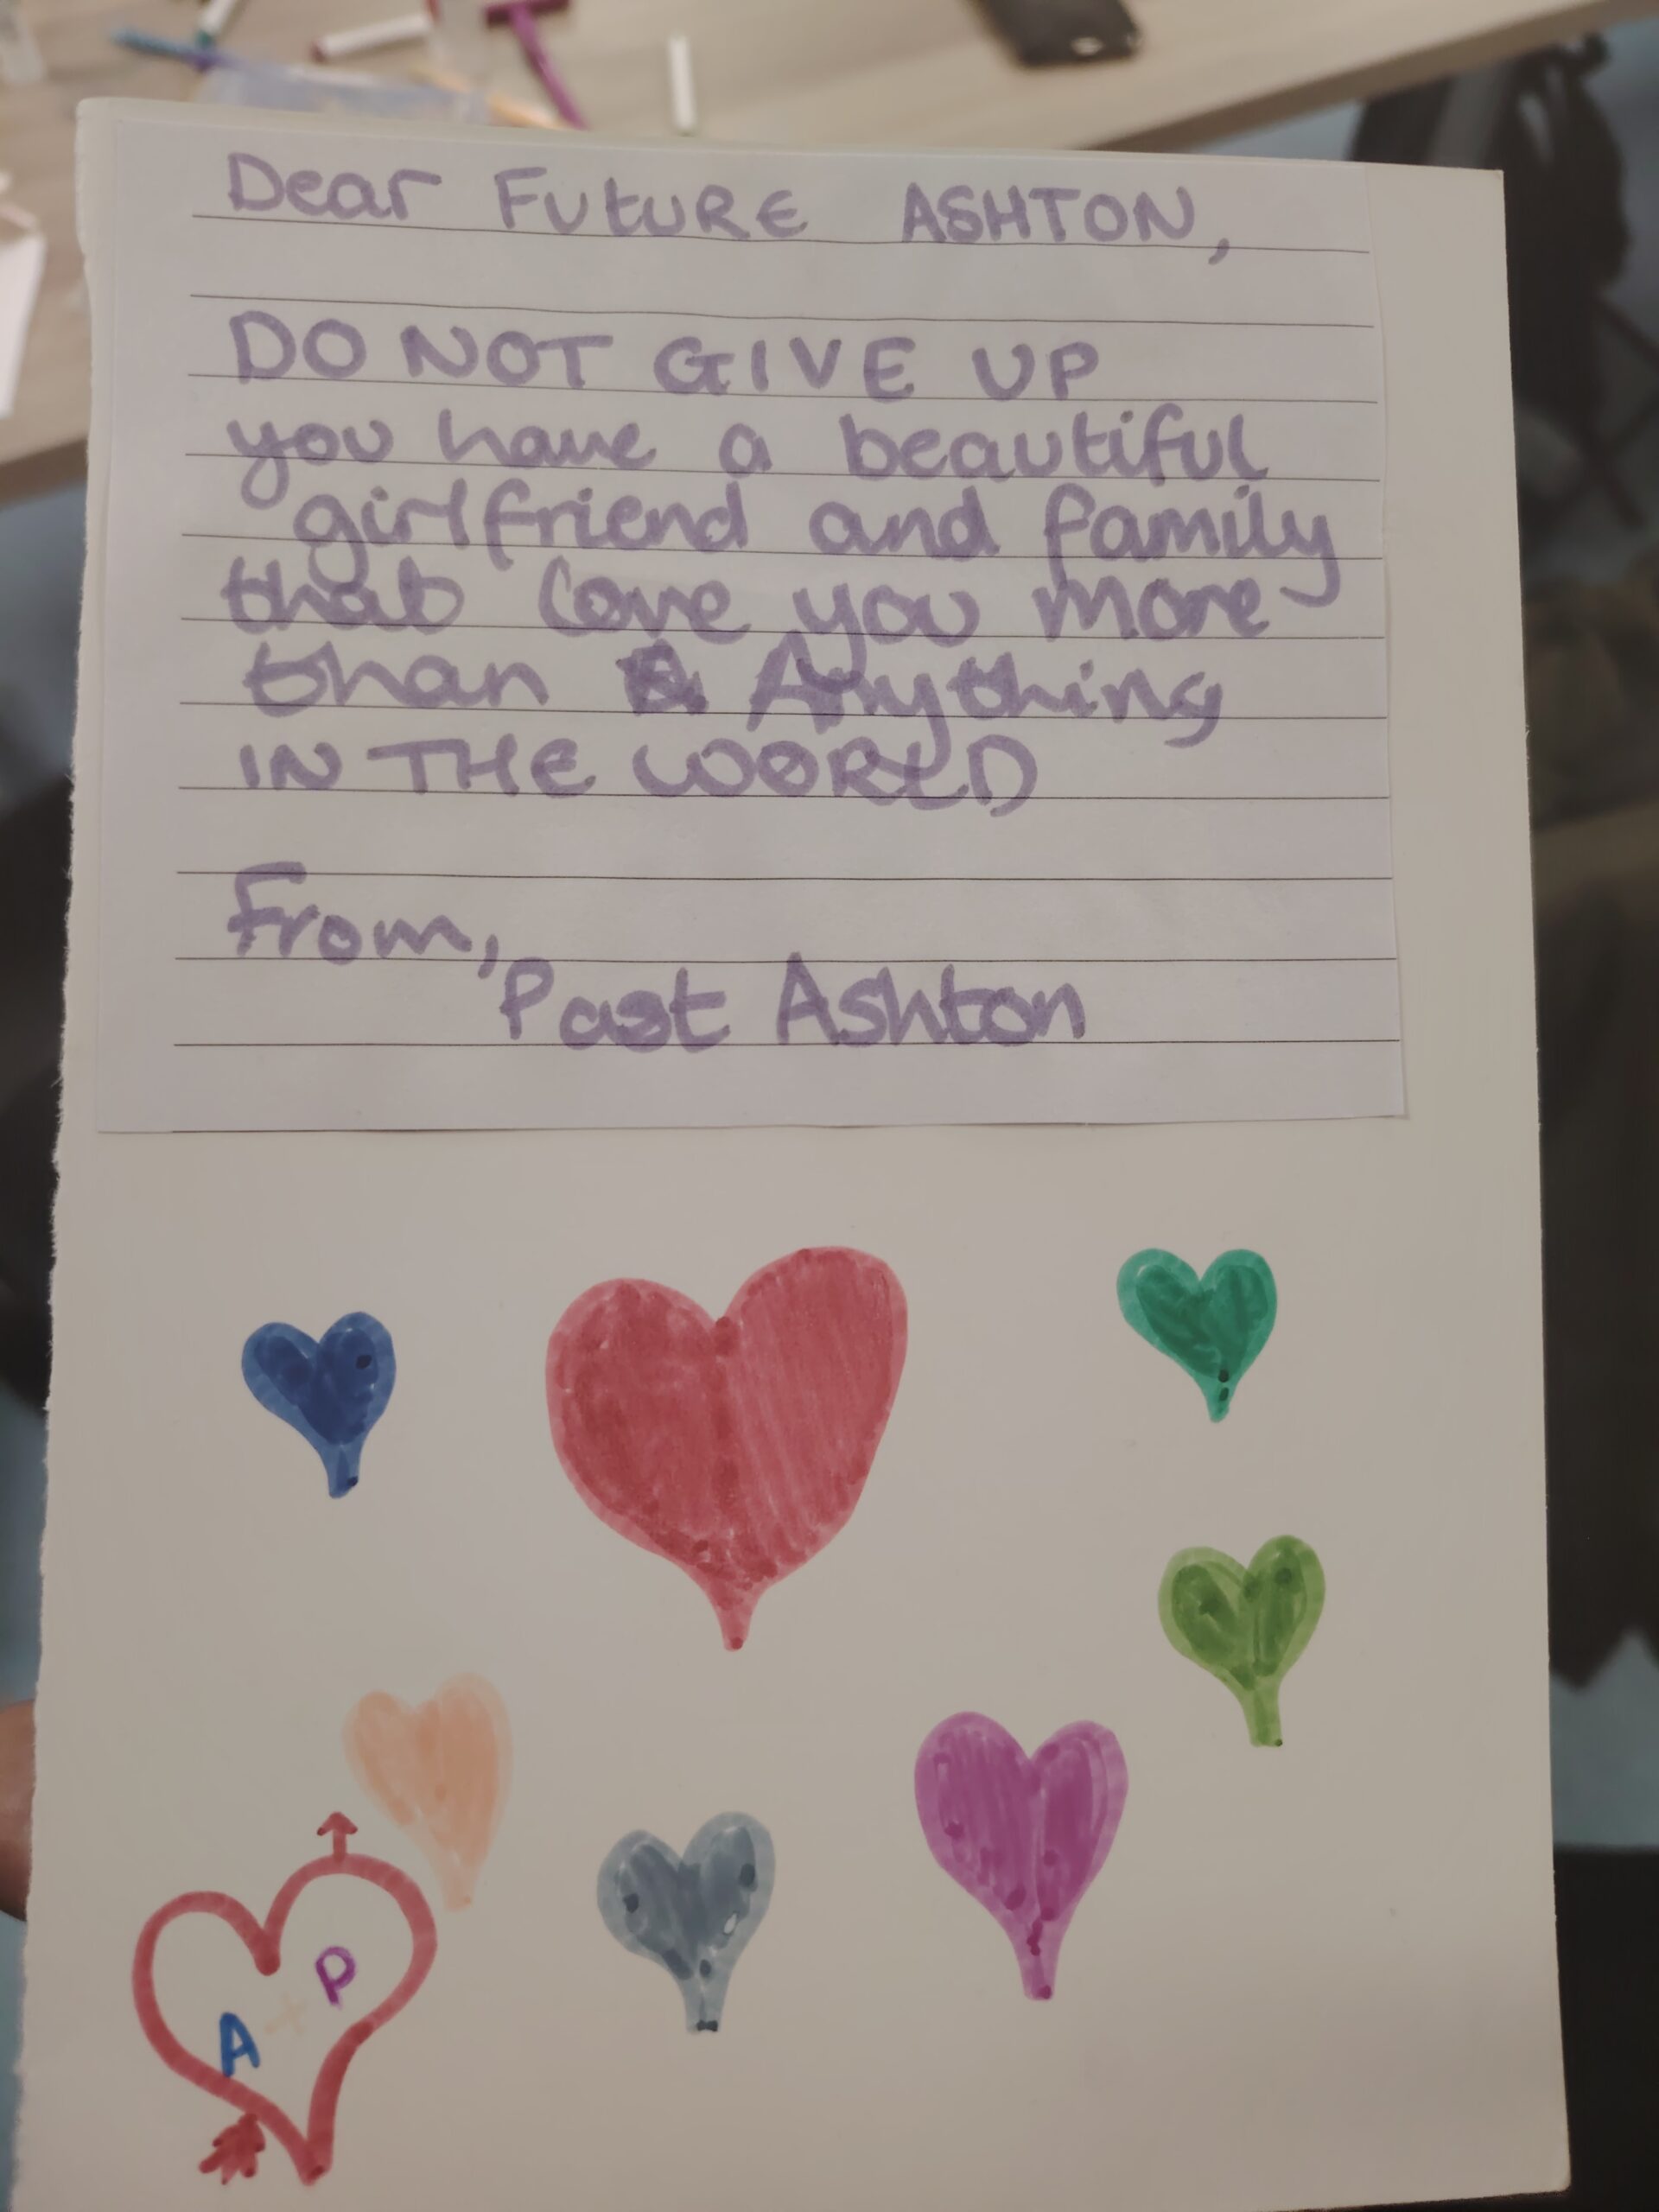 Dear FUtURE ASHTON,
DO NOT GIVE UP
you have a beautiful
girlfriend and family
that love you more
than Anything
IN THE WORLD
From,
Past Ashton
A + P